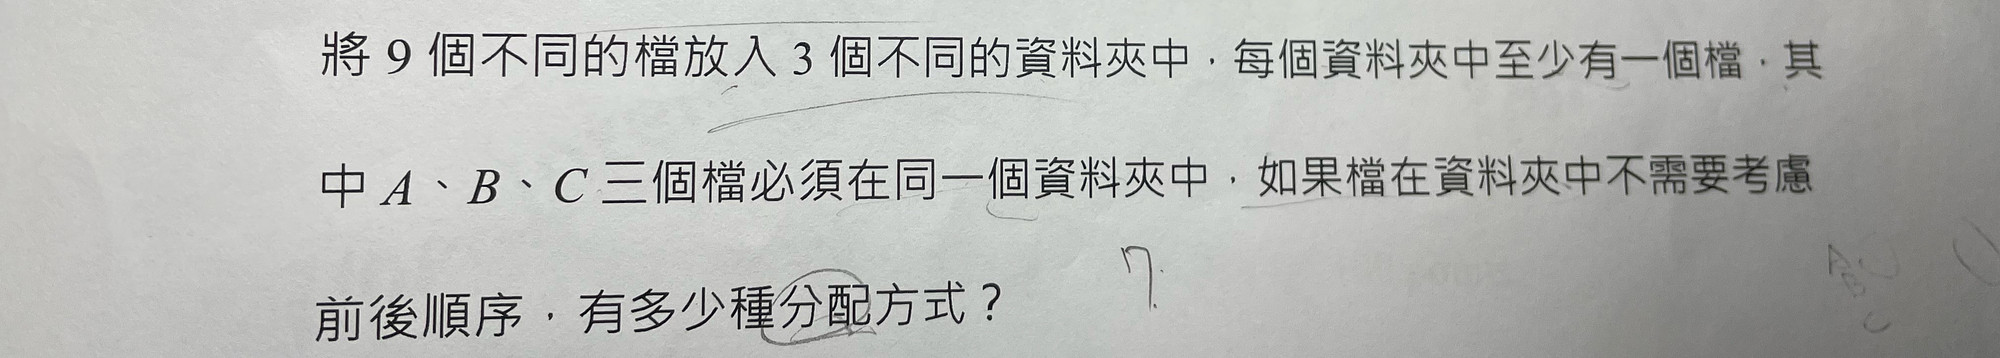 將 9 個不同的檔放入 3 個不同的資料夾中，每個資料夾中至少有一個檔，其
中 A、B、C 三個檔必須在同一個資料夾中，如果檔在資料夾中不需要考慮
前後順序，有多少種分配方式？
7.